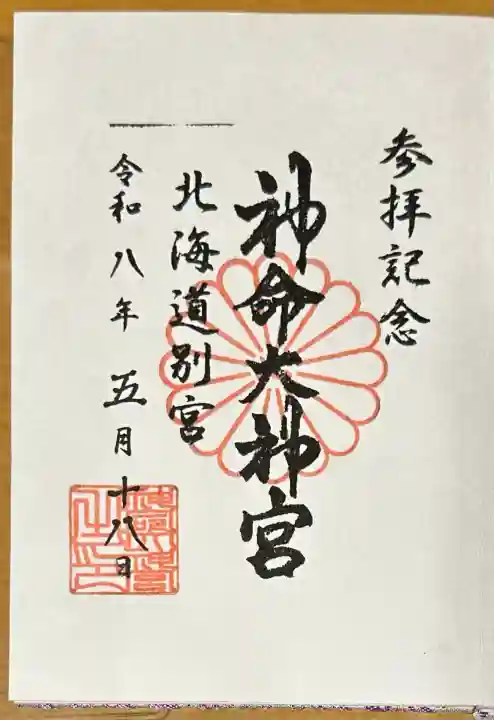 参拝記念
神命大神宮
北海道別宮
令和八年五月十八日